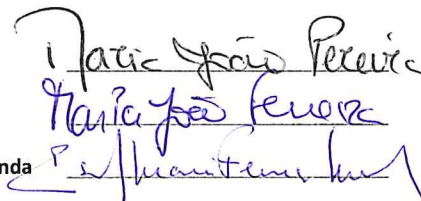 Maria João Pereira
Maria João Ferreira
nda